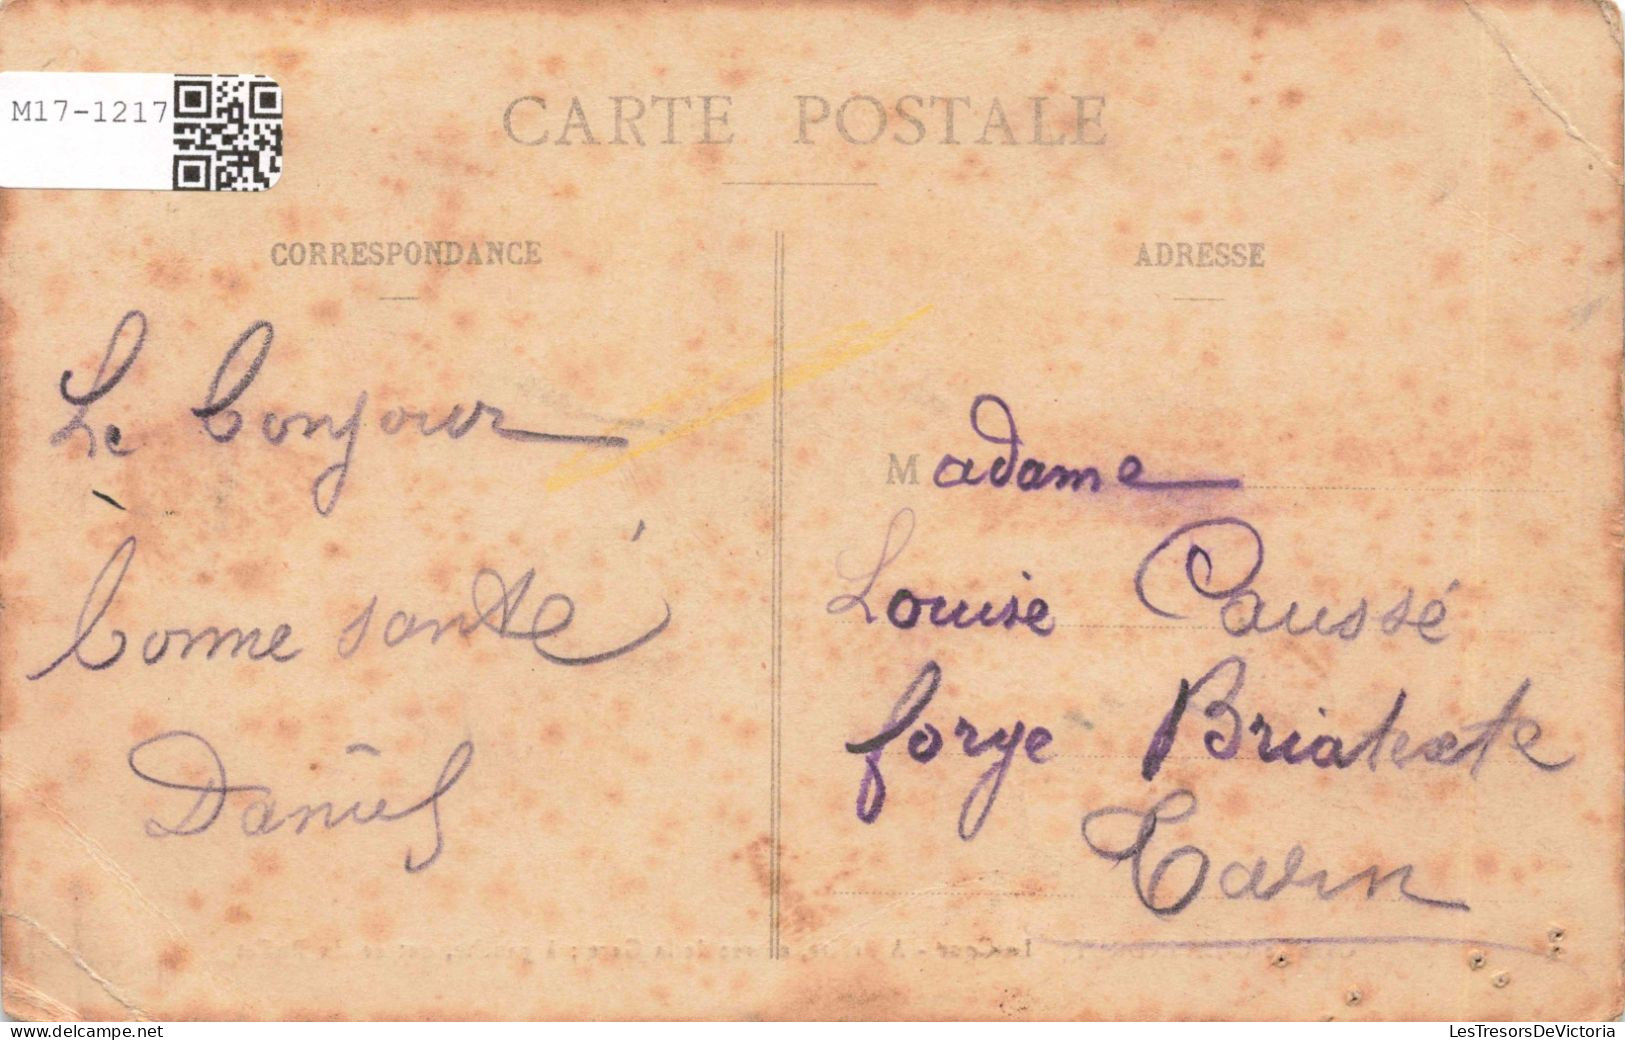 M17-1217
CARTE POSTALE
CORRESPONDANCE
Le bonjour
bonne santé
Daniel
ADRESSE
Madame
Louise Caussé
forge Briatexte
Tarn
LesTresorsDeVictoria
delcampe.net